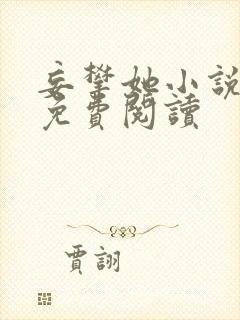 妄攀她小說
免費閱讀
賈詡